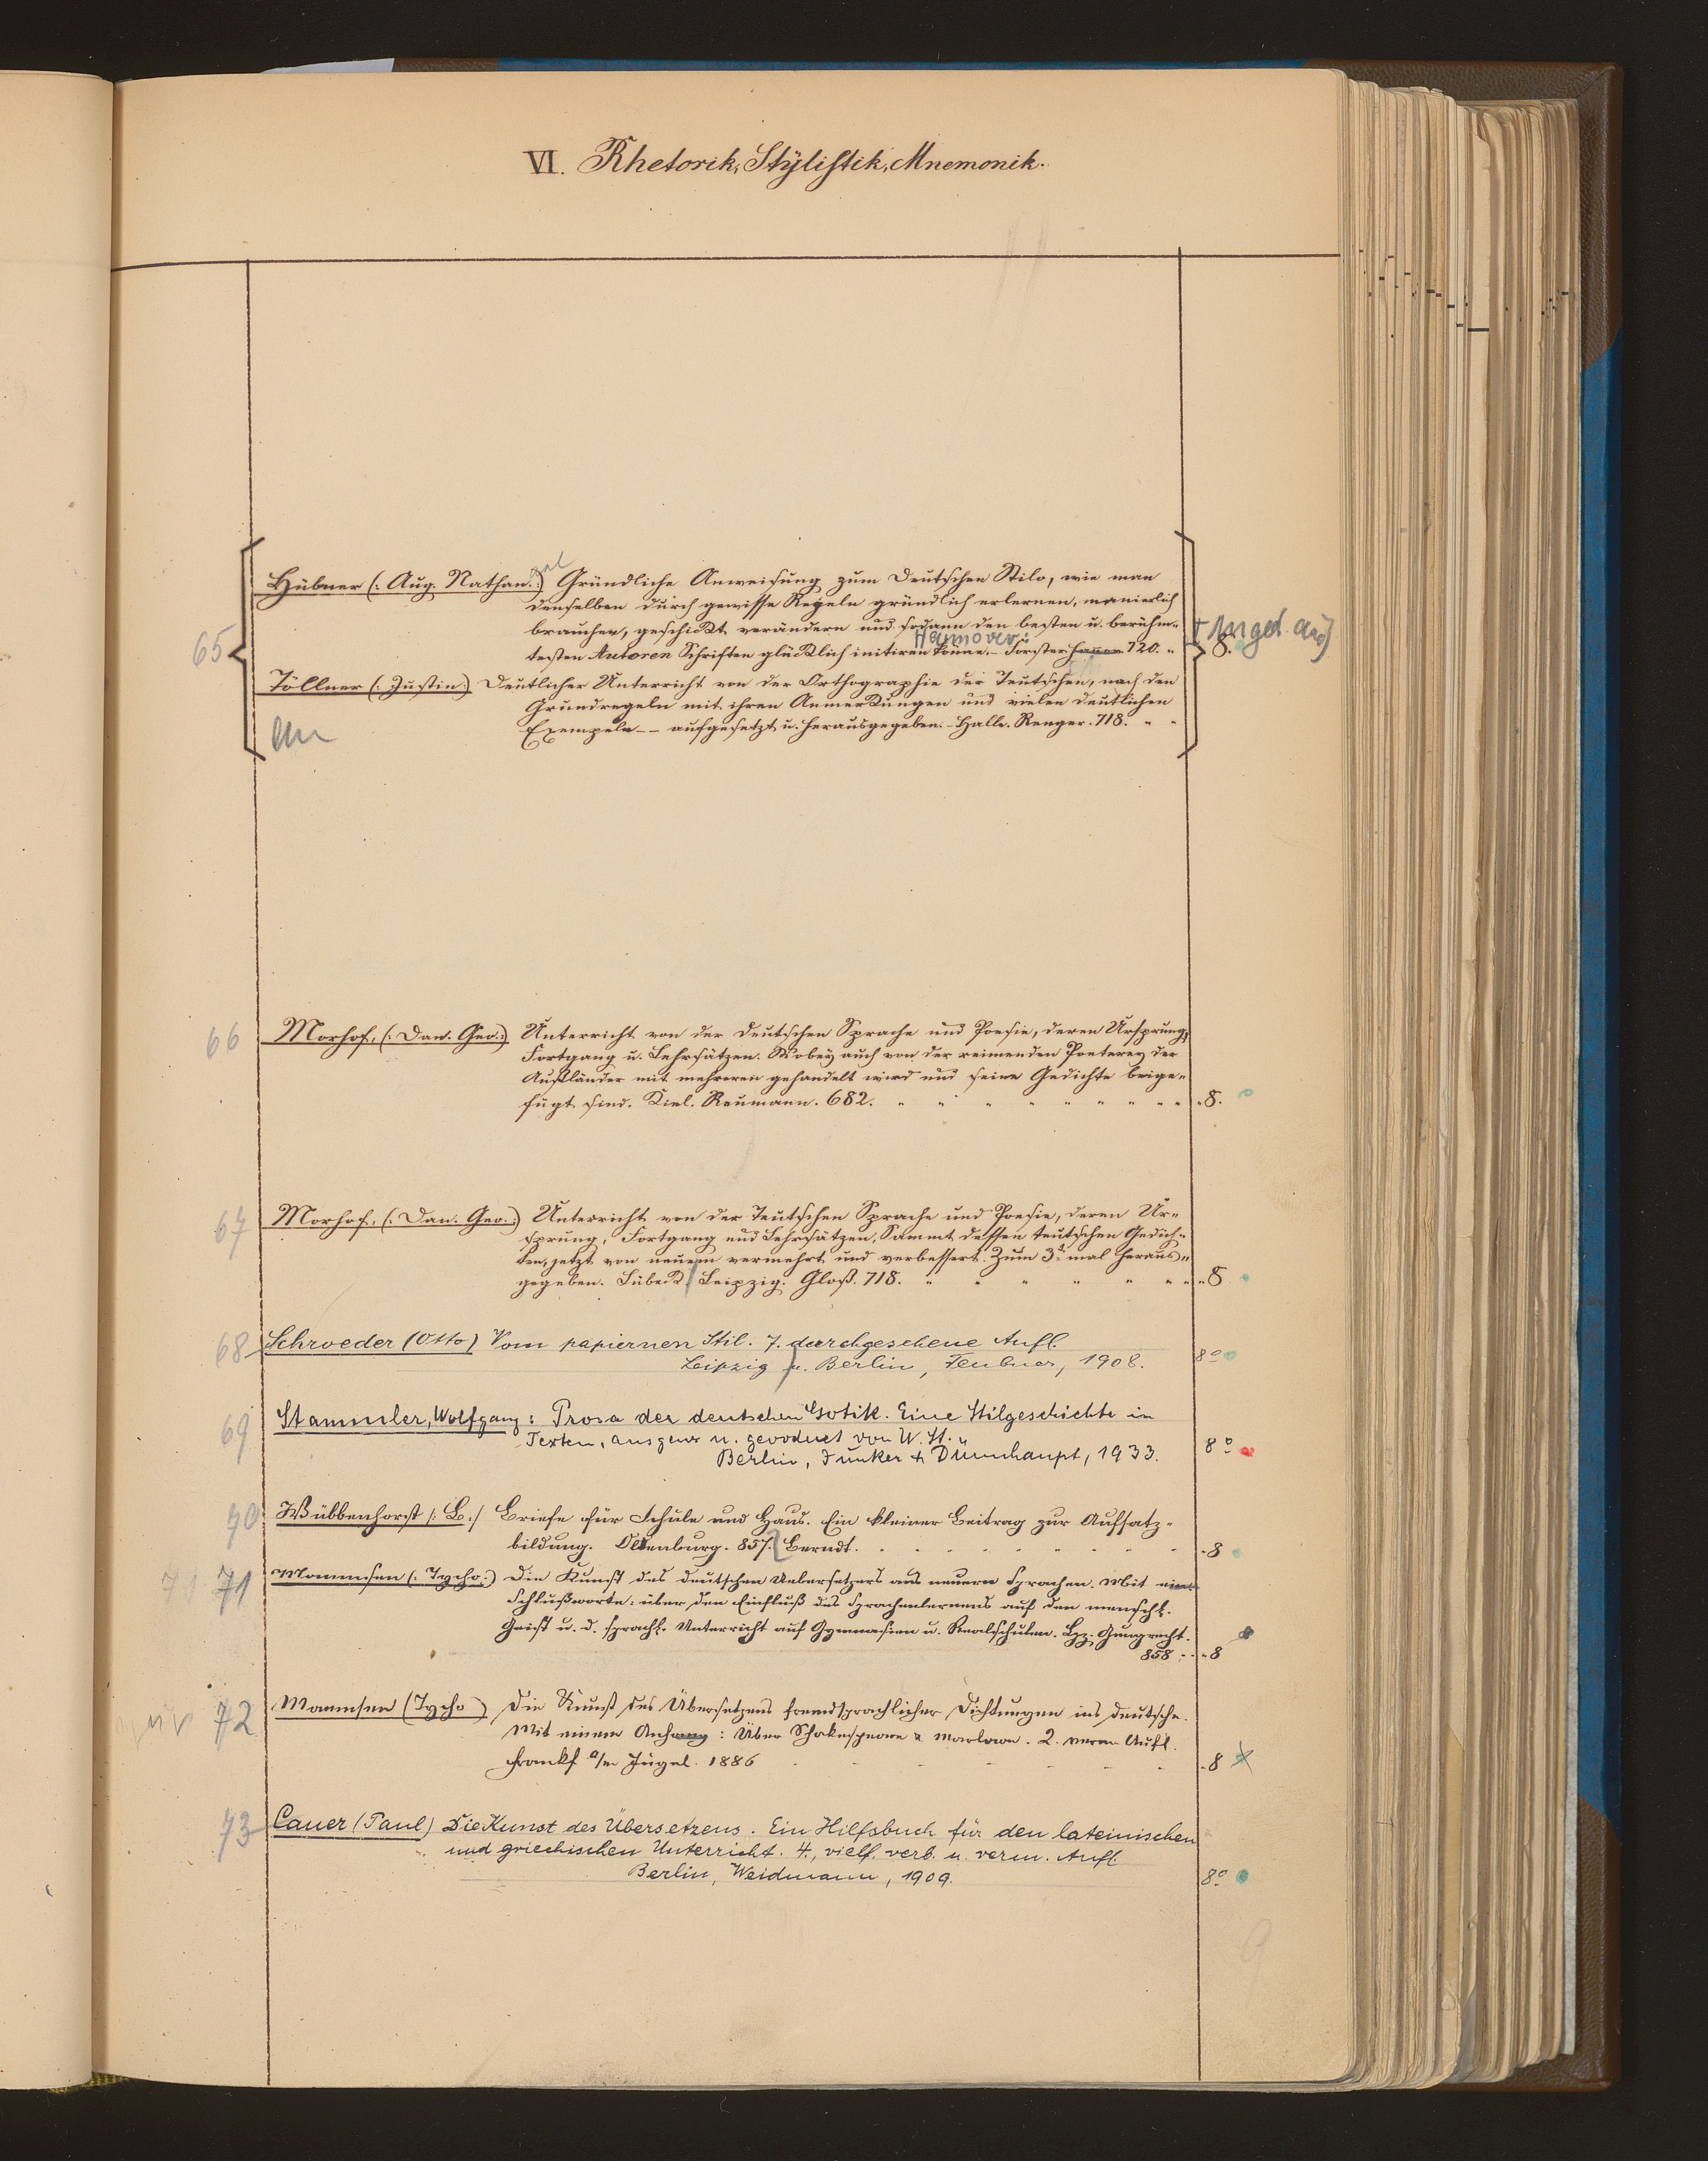 VI. Rhetorik, Stÿlistik, Mnemonik.
65
Hübner (: Aug. Nathan. :) Gründliche Anweisung zum Deutschen Stilo, wie man
denselben durch gewisse Regeln gründlich erlernen, manierlich
brauchen, geschickt verändern und sodann den besten u. berühm-
Hannover:
testen Autoren Schriften glücklich imitiren könne. - Förster 720. "
8.
Töllner (: Justin :) Deutlicher Unterricht von der Orthographie der Teutschen, nach den
Grundregeln mit ihren Anmerkungen und vielen deutlichen
Exempeln -- aufgesetzt u. herausgegeben. - Halle. Renger. 718. " "
66
Morhof, (: Dan. Geo. :) Unterricht von der Deutschen Sprache und Poesie, deren Ursprung,
Fortgang u. Lehrsätzen. Wobey auch von der reimenden Poeterey der
Außländer mit mehreren gehandelt wird und seine Gedichte beige-
fügt sind. Kiel. Reumann. 682. " " " " " " " " " 8.
67
Morhof, (: Dan. Geo. :) Unterricht von der Teutschen Sprache und Poesie, deren Ur-
sprung, Fortgang und Lehrsätzen, Sammt dessen teutschen Gedich-
ten, jetzt von neuem vermehrt und verbessert. Zum 3t. mal heraus-
gegeben. Lübeck / Leipzig. Gloß. 718. " " " " " " " 8
68
Schroeder (Otto) Vom papiernen Stil. 7. durchgesehene Aufl.
Leipzig u. Berlin, Teubner, 1908. 8°
69
Stammler, Wolfgang: Prosa der deutschen Gotik. Eine Stilgeschichte in
Texten, ausgew. u. geordnet von W. St.
Berlin, Junker & Dünnhaupt, 1933. 8°
70
Wübbenhorst /: B. :/ Briefe für Schule und Haus. Ein kleiner Beitrag zur Aufsatz-
bildung. Oldenburg. 857. Berndt. 8
71 71
Mommsen (: Tycho :) Die Kunst des deutschen Uebersetzers aus neuern Sprachen. Mit eine
Schlußworte: über den Einfluß des Sprachenlernens auf den menschl.
Geist u. d. sprachl. Unterricht auf Gymnasien u. Realschulen. Lpz. Gumprecht.
858 8
72
Mommsen (Tycho) Die Kunst des Übersetzens fremdsprachlicher Dichtungen ins Deutsche.
Mit einem Anhang: Über Shakespeare & Marlowe. 2. verm. Aufl.
Frankf a/m Jügel. 1886 8
73
Cauer (Paul) Die Kunst des Übersetzens. Ein Hilfsbuch für den lateinischen
und griechischen Unterricht. 4., vielf. verb. u. verm. Aufl.
Berlin, Weidmann, 1909. 8°
9